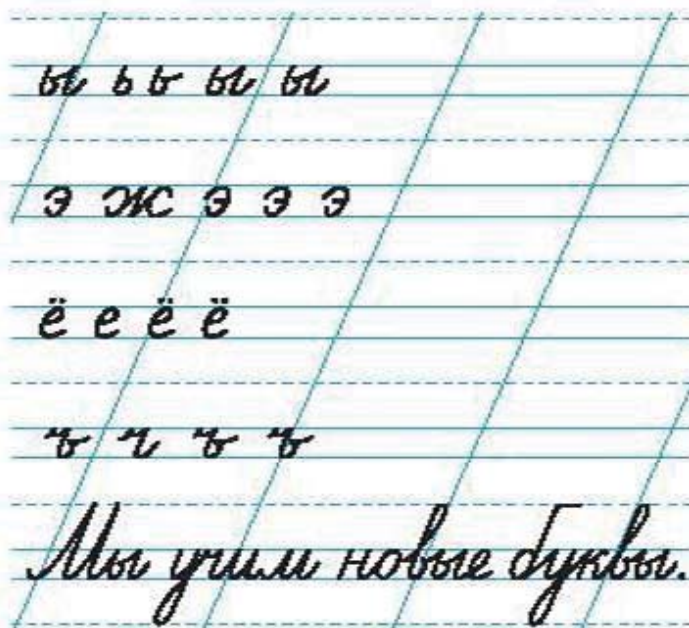 ы ь ь ы ы
э ж э э э
ё е ё ё
ъ ч ъ ъ
Мы учим новые буквы.